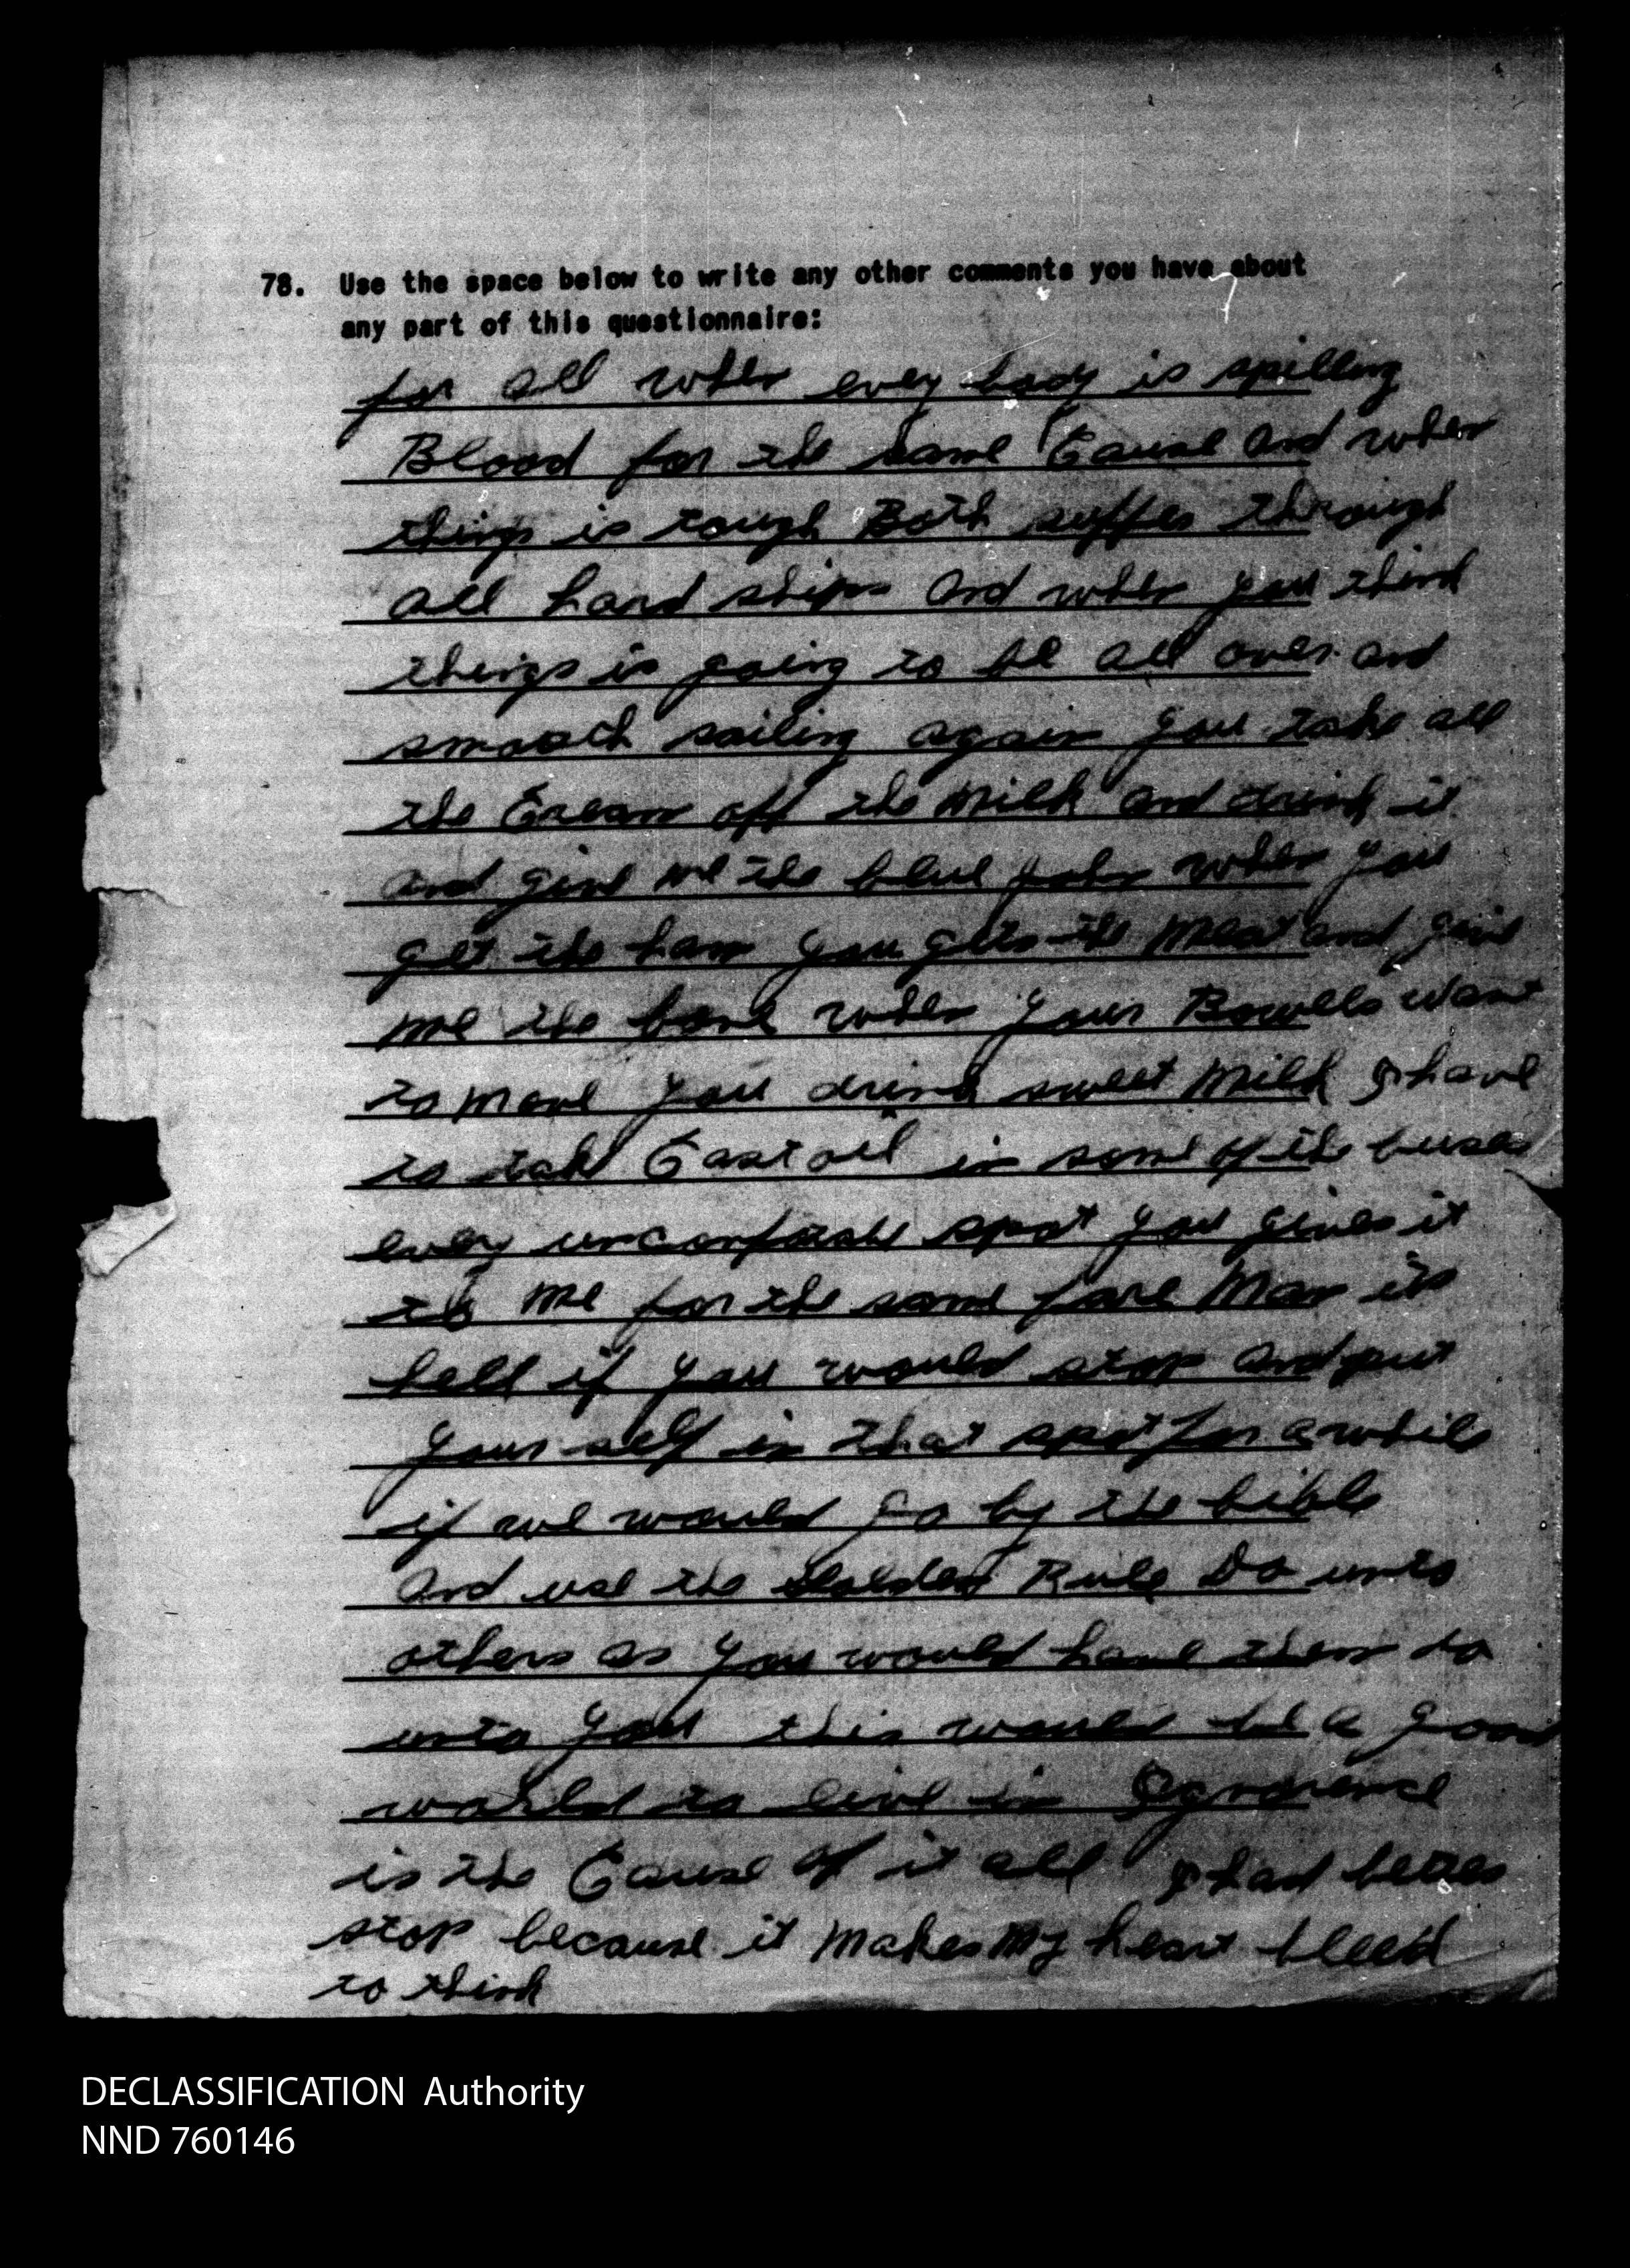 78. Use the space below to write any other comments you have about
any part of this questionnaire:
for all when evey body is spilling
Blood for the same Cause and when
things is tough Both suffer through
all hard ships and when you think
things is going to be all over and
smooth sailing again you take all
the Cream off the milk and drink it
and give me the blue john when you
get the ham you gets the meat and give
me the bone when your Bowells want
to move you drink sweet milk I have
to take Castoil in some of the buses
every uncomfortable spot you gives it
to me for the same fare Man its
hell if you would stop and put
your self in that spot for a while
if we would go by the bible
and use the Golden Rule Do unto
others as you would have them do
unto you this would be a good
world to live in Ignorence
is the Cause of it all I had better
stop because it makes my heart bleed
to think
DECLASSIFICATION Authority
NND 760146